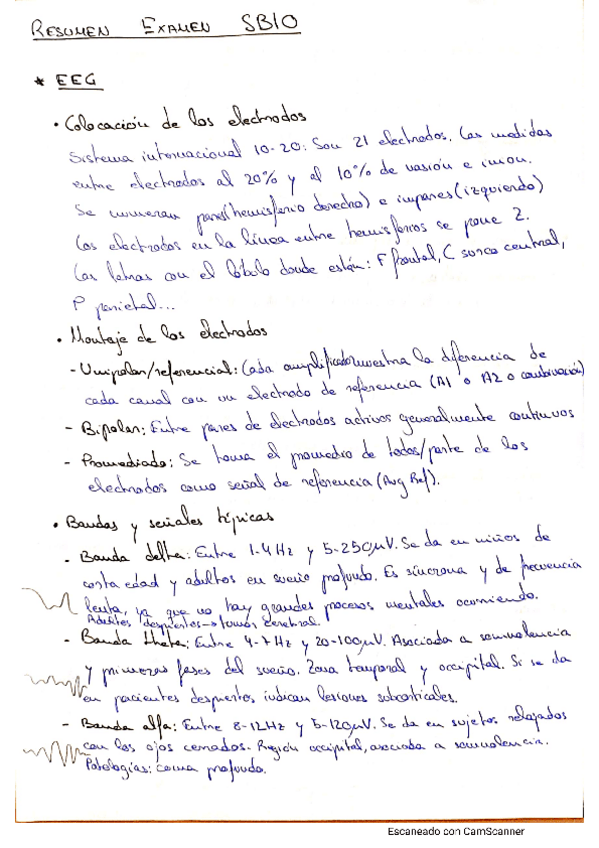 RESUMEN EXAMEN SBIO
* EEG
• Colocación de los electrodos
Sistema internacional 10-20: Son 21 electrodos. Las medidas
entre electrodos al 20% y al 10% de nasión e inion.
Se numeran pares(hemisferio derecho) e impares(izquierdo)
Los electrodos en la línea entre hemisferios se pone Z.
Las letras con el lóbulo donde están: F frontal, C surco central,
P parietal...
• Montaje de los electrodos
- Unipolar/referencial: Cada amplificador muestra la diferencia de
cada canal con un electrodo de referencia (A1 o A2 o combinación)
- Bipolar: Entre pares de electrodos activos generalmente continuos
- Promediado: Se toma el promedio de todos/parte de los
electrodos como señal de referencia (Avg Ref).
• Bandas y señales típicas
- Banda delta: Entre 1-4Hz y 5-250µV. Se da en niños de
corta edad y adultos en sueño profundo. Es síncrona y de frecuencia
lenta, ya que no hay grandes procesos mentales ocurriendo.
Adultos despiertos → tumor cerebral.
- Banda theta: Entre 4-7Hz y 20-100µV. Asociada a somnolencia
y primeras fases del sueño. Zona temporal y occipital. Si se da
en pacientes despiertos indican lesiones subcorticales.
- Banda alfa: Entre 8-12Hz y 5-120µV. Se da en sujetos relajados
con los ojos cerrados. Región occipital, asociada a somnolencia.
Patologías: coma profundo.
Escaneado con CamScanner